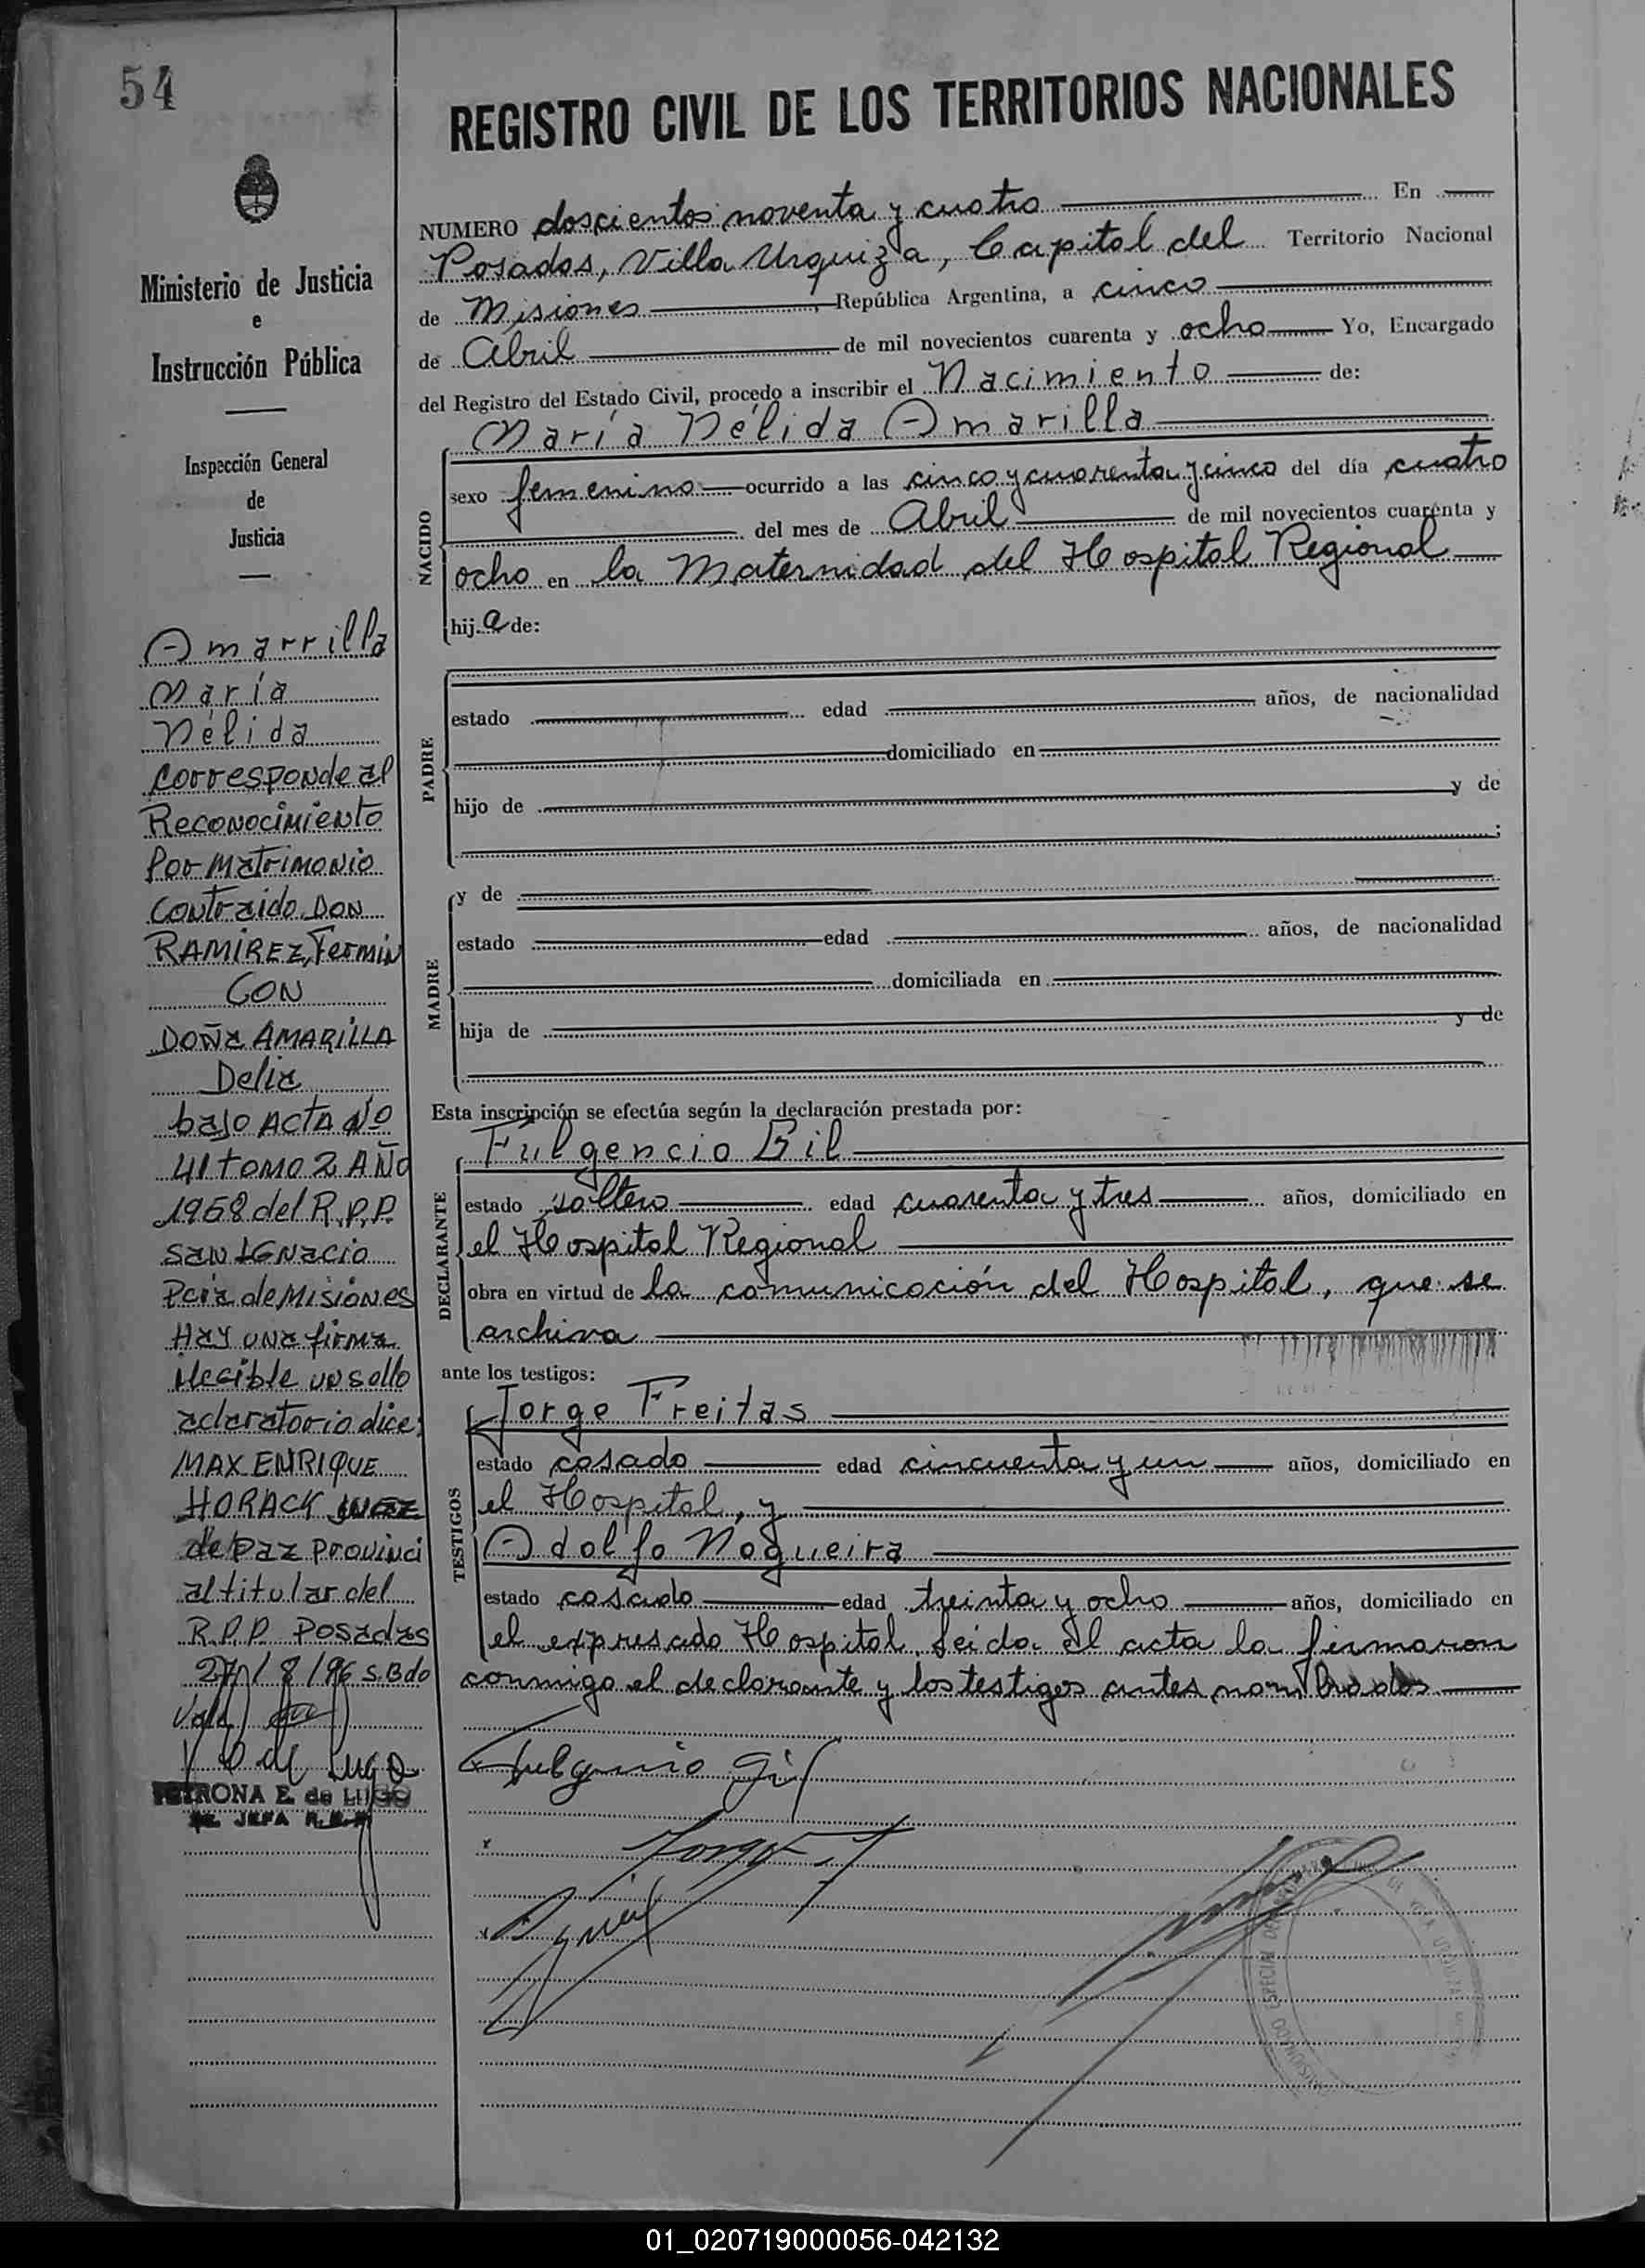 54
REGISTRO CIVIL DE LOS TERRITORIOS NACIONALES
Ministerio de Justicia
e
Instrucción Pública
Inspección General
de
Justicia
Amarrilla
María
Nélida
corresponde al
Reconocimiento
Por Matrimonio
Contraido Don
RAMIREZ, Fermin
CON
DOÑA AMARILLA
Delia
bajo ACTA Nº
41 tomo 2 AÑO
1958 del R.P.P.
SAN IGNACIO
Pcia de MISIONES
HAY una firma
ilegible un sello
aclaratorio dice:
MAX ENRIQUE
HORACK JUEZ
de Paz Provinci
al titular del
R.P.P. Posadas
27/8/96 S.Bdo
Vale
PETRONA E. de LUGO
JEFA R.P.P.
NUMERO doscientos noventa y cuatro En
Posadas, Villa Urquiza, Capital del Territorio Nacional
de Misiones, República Argentina, a cinco
de Abril de mil novecientos cuarenta y ocho Yo, Encargado
del Registro del Estado Civil, procedo a inscribir el Nacimiento de:
María Nélida Amarilla
NACIDO
sexo femenino ocurrido a las cinco y cuarenta y cinco del día cuatro
del mes de Abril de mil novecientos cuarenta y
ocho en la Maternidad del Hospital Regional
hij.a de:
PADRE
estado edad años, de nacionalidad
domiciliado en
hijo de y de
;
MADRE
y de
estado edad años, de nacionalidad
domiciliada en
hija de y de
Esta inscripción se efectúa según la declaración prestada por:
DECLARANTE
Fulgencio Gil
estado soltero edad cuarenta y tres años, domiciliado en
el Hospital Regional
obra en virtud de la comunicación del Hospital, que se
archiva
ante los testigos:
TESTIGOS
Jorge Freitas
estado casado edad cincuenta y un años, domiciliado en
el Hospital, y
Adolfo Nogueira
estado casado edad treinta y ocho años, domiciliado en
el expresado Hospital. Leída el acta la firmaron
conmigo el declarante y los testigos antes nombrados
Fulgencio Gil
Jorge F
01_020719000056-042132